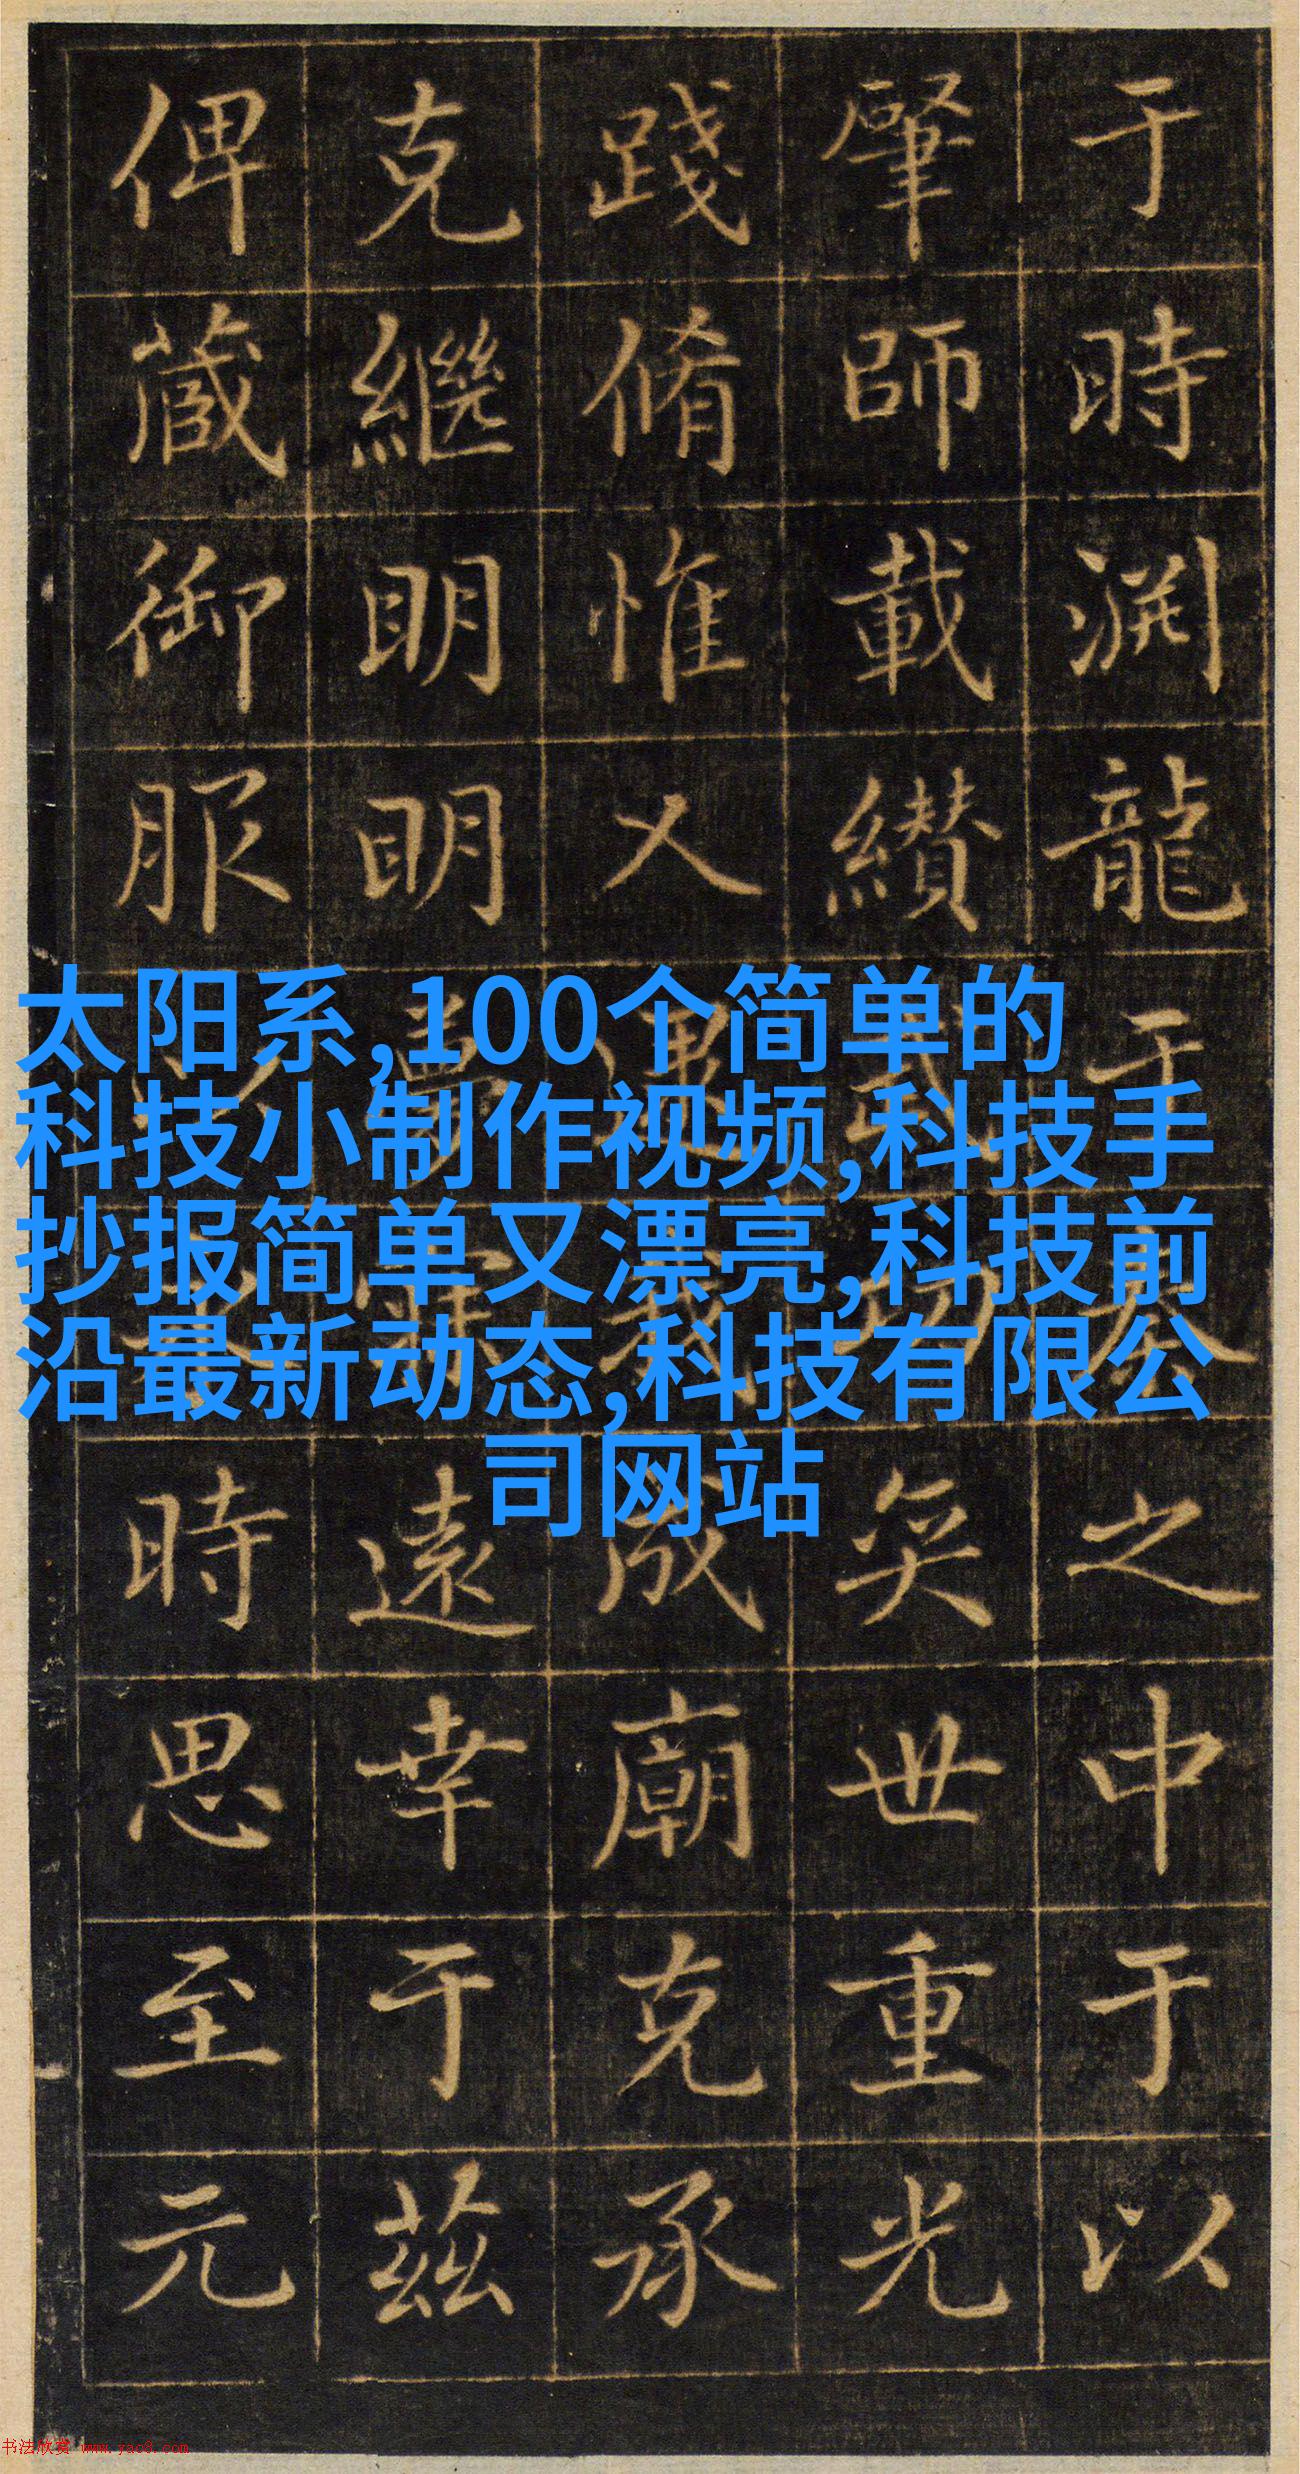 于時渊龍于之中于以
肇師載纘武功奕世重光
踐脩惟乂運我成廟克承
克繼明明夢寐遠幸于茲
俾蕆御服以時思至元
太阳系,100个简单的
科技小制作视频,科技手
抄报简单又漂亮,科技前
沿最新动态,科技有限公
司网站
书法欣赏 www.yac8.com